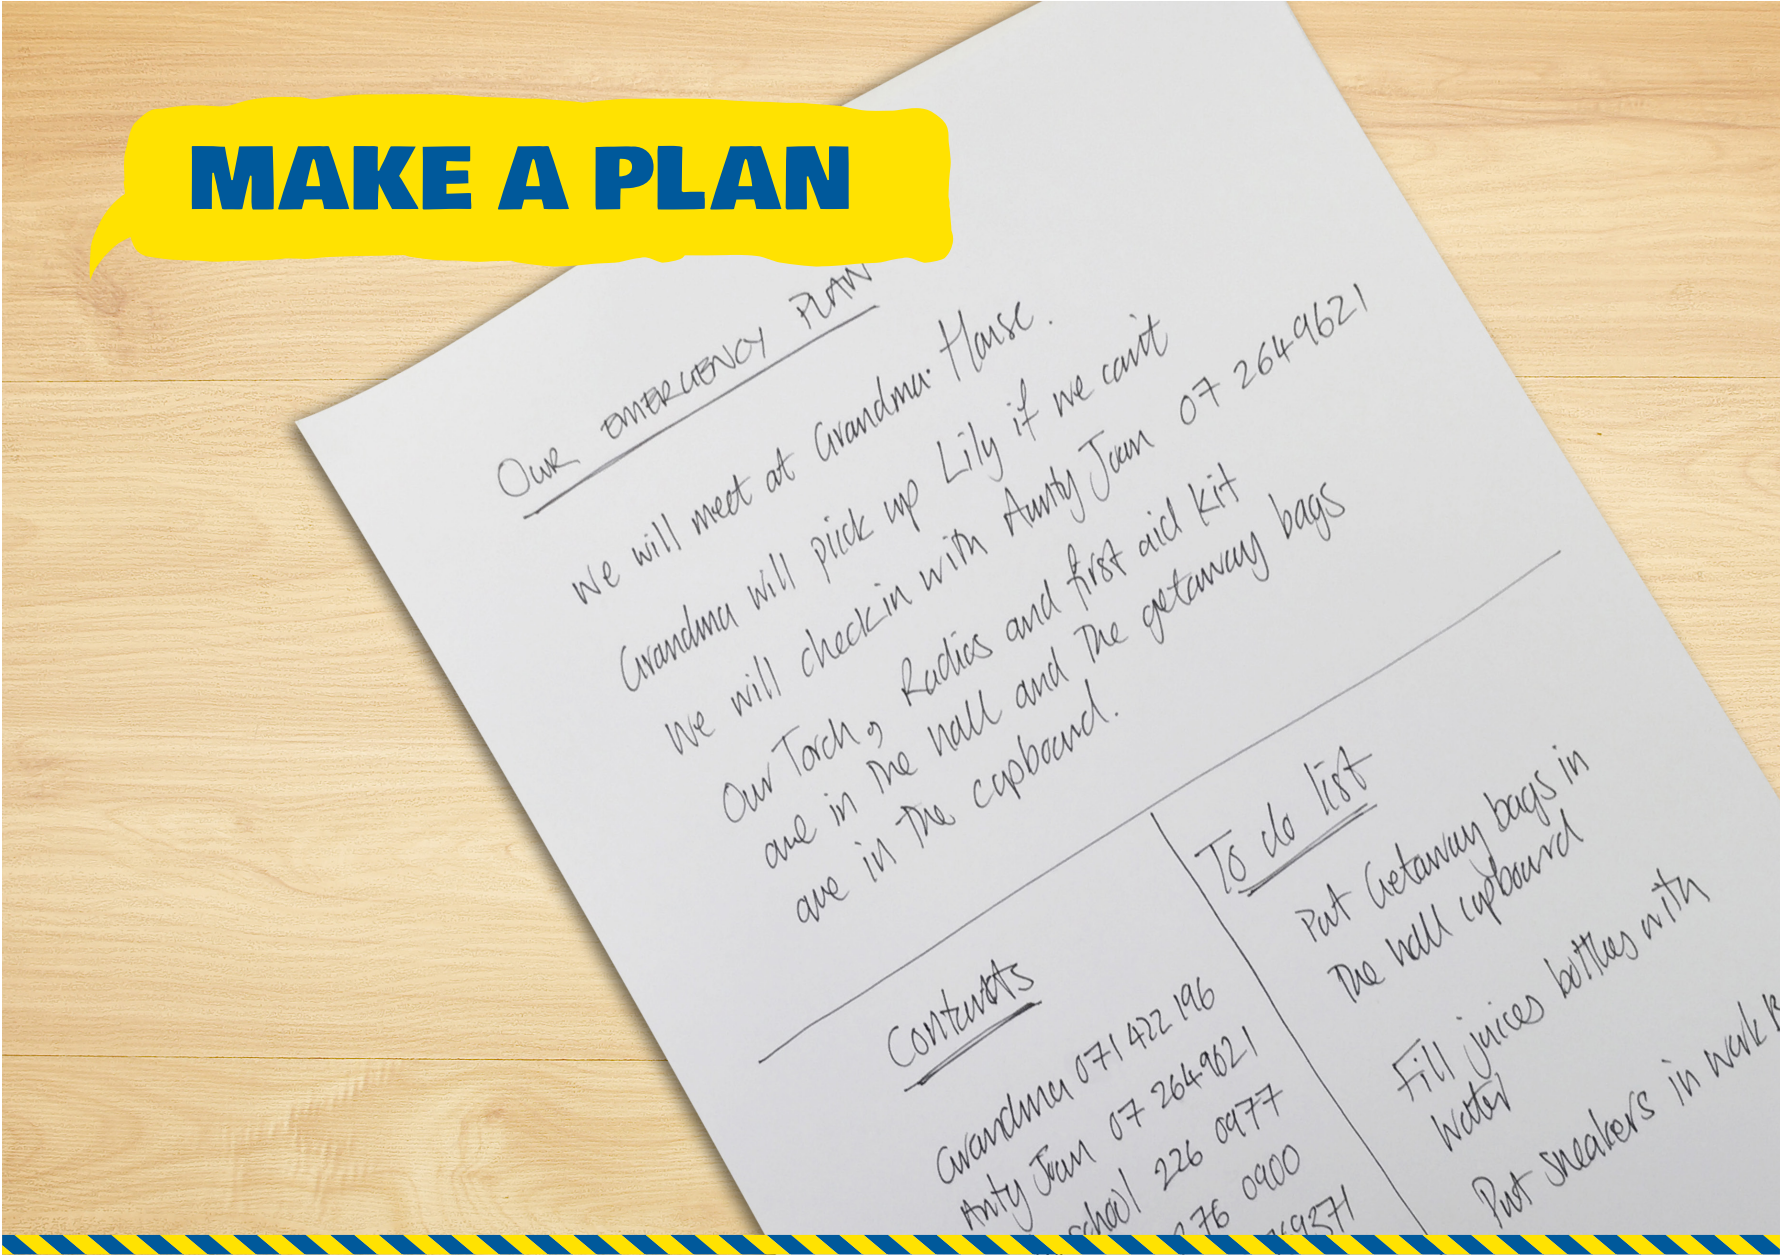 MAKE A PLAN
OUR EMERGENCY PLAN
We will meet at Grandma. House.
Grandma will pick up Lily if we can't
We will check in with Aunty Joan 07 2649621
Our Torch, Radios and first aid kit
are in the hall and The getaway bags
are in the cupboard.
Contacts
Grandma 071 422 196
Anty Joan 07 2649621
school 226 0977
76 0900
69371
To do list
Put Getaway bags in
The hall cupboard
Fill juices bottles with
Water
Put sneakers in work